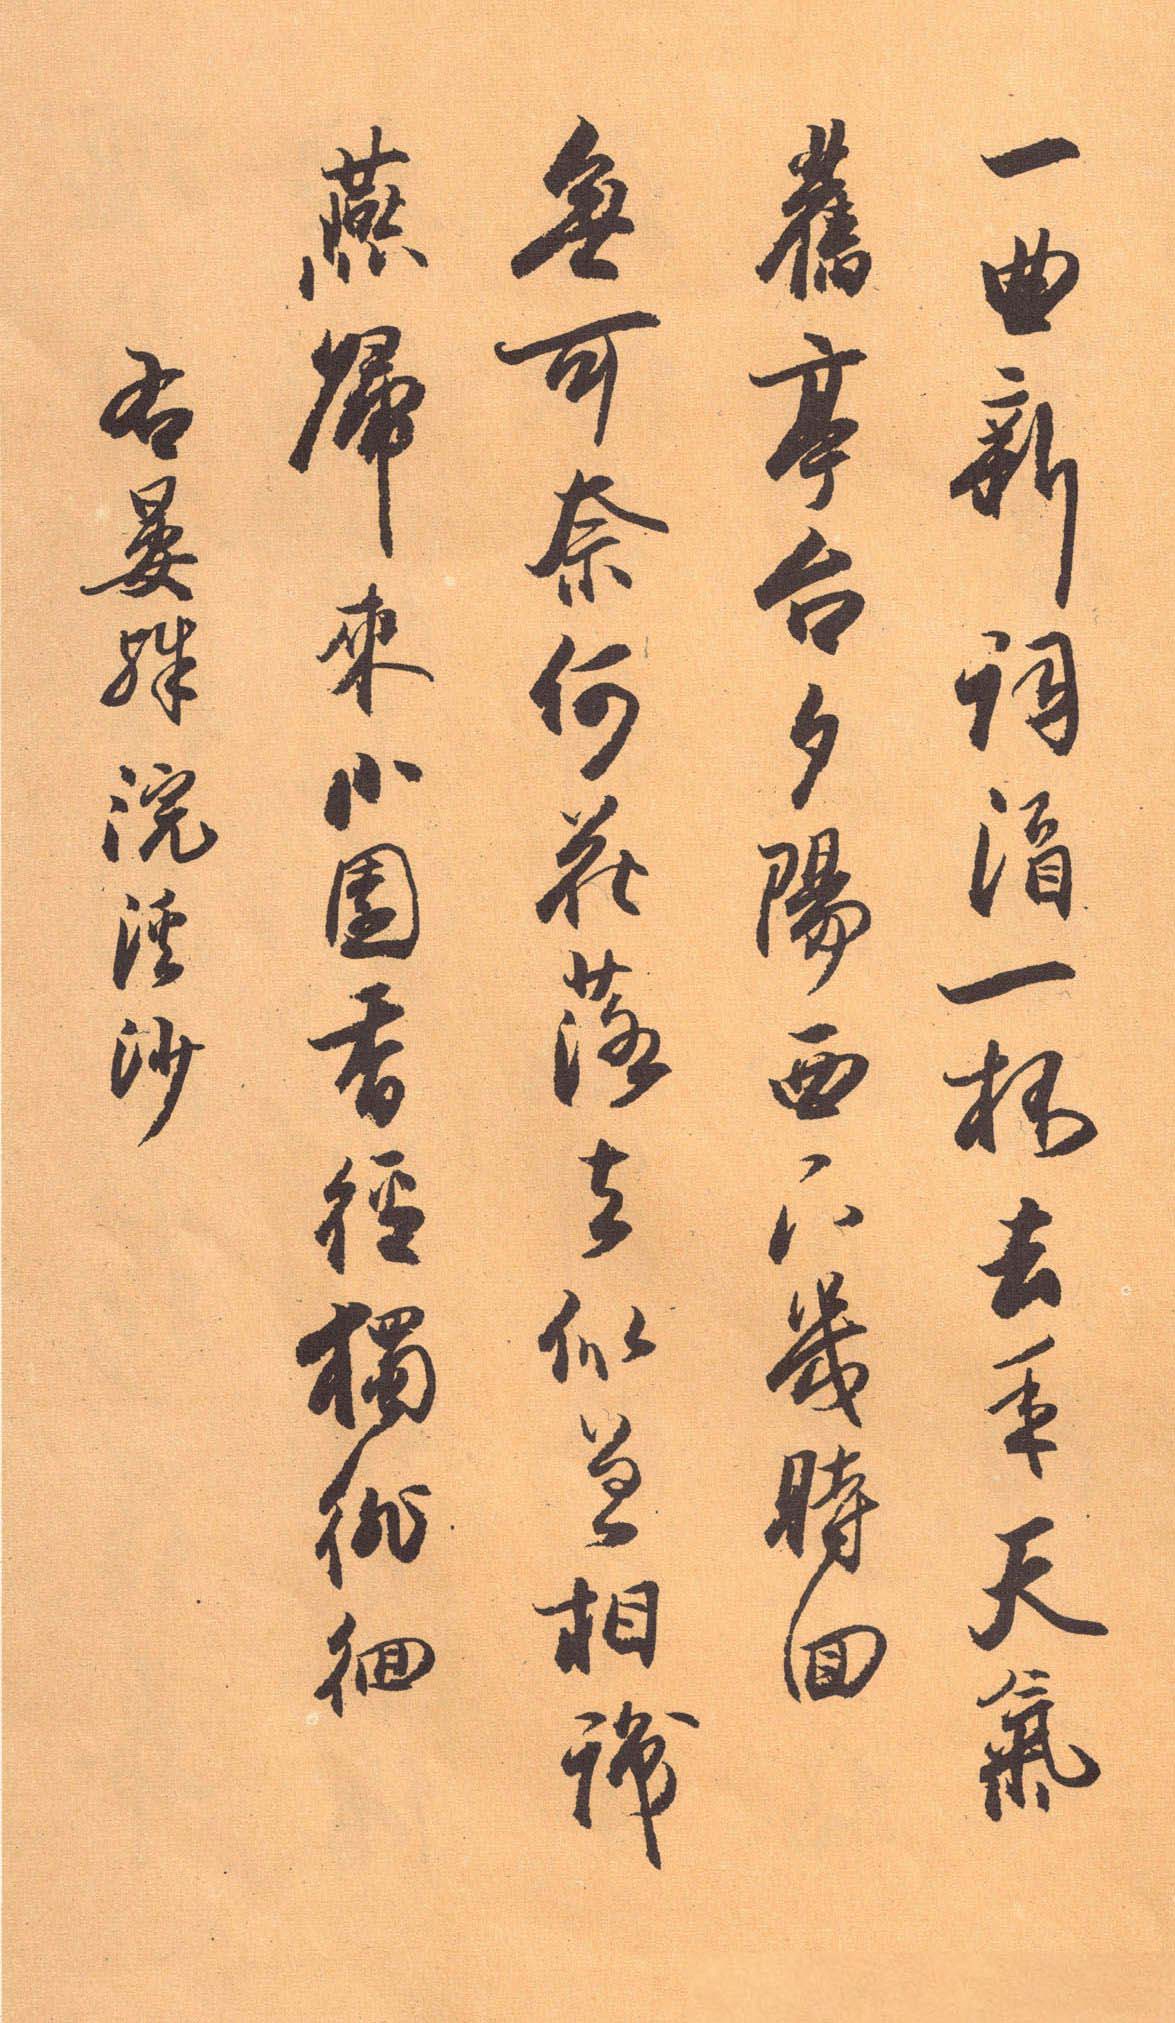 一曲新詞酒一杯去年天氣
舊亭台夕陽西下幾時回
無可奈何花落去似曾相識
燕歸來小園香徑獨徘徊
右晏殊浣溪沙